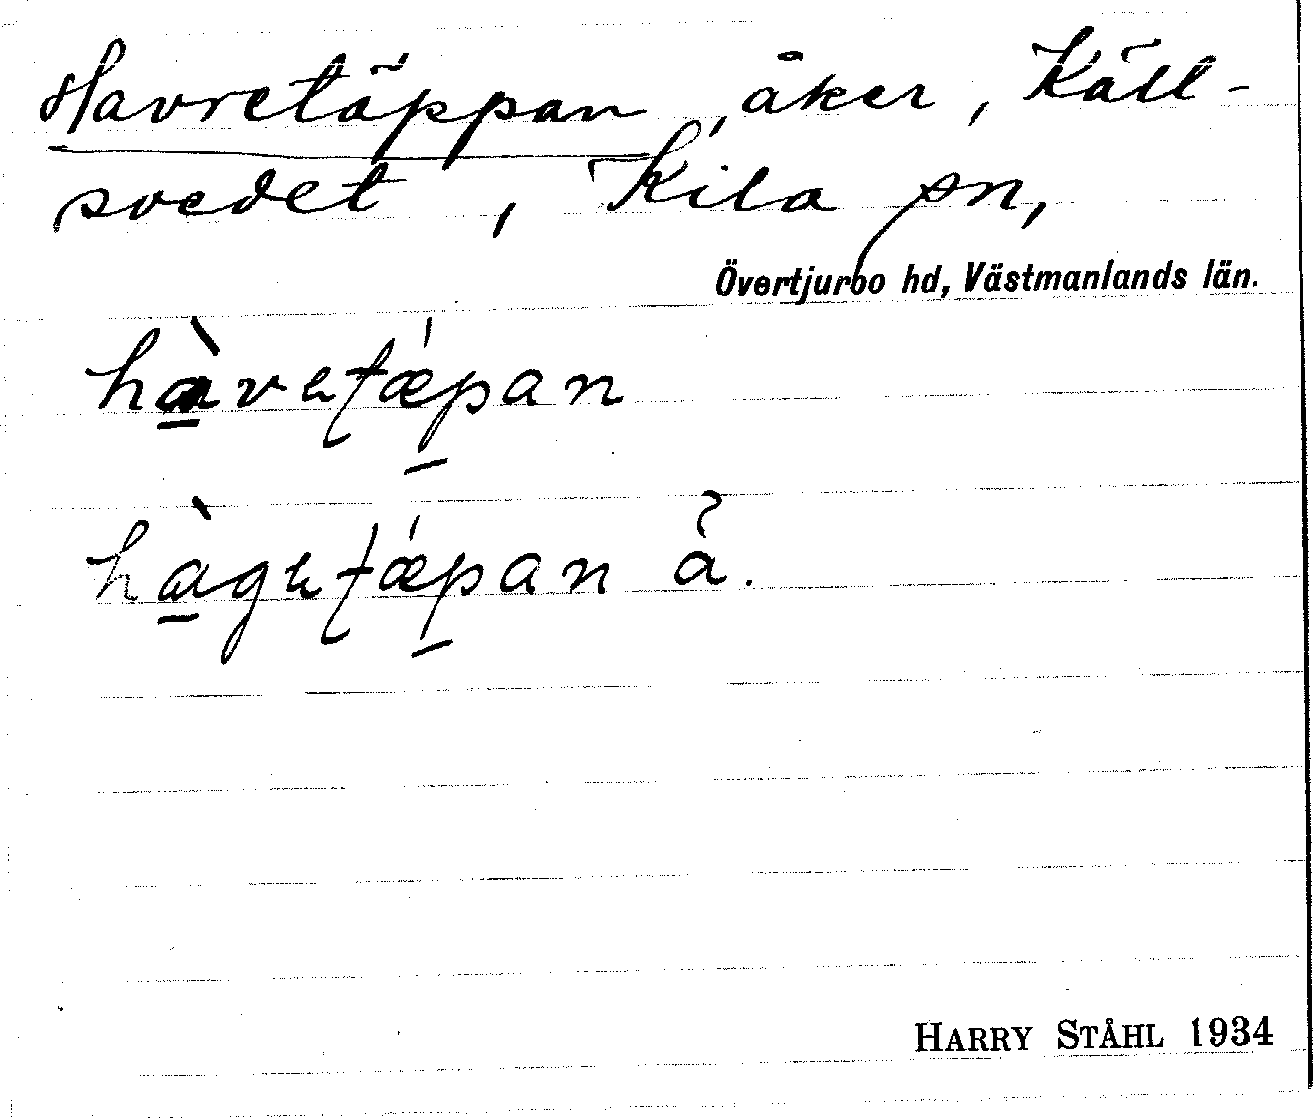 Havretäppan, åker, Käll-
svedet, Kila sn,
Övertjurbo hd, Västmanlands län.
hàvetǽpan
hàgetǽpan å.
HARRY STÅHL 1934